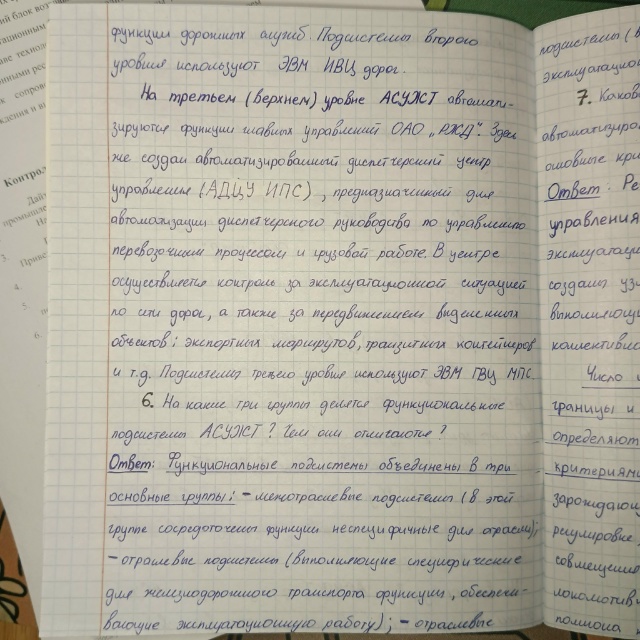 функции дорожных служб. Подсистемы второго
уровня используют ЭВМ ИВЦ дорог.
На третьем (верхнем) уровне АСУЖТ автомати-
зируются функции главных управлений ОАО „РЖД". Здесь
же создан автоматизированный диспетчерский центр
управления (АДЦУ ИПС), предназначенный для
автоматизации диспетчерского руководства по управлению
перевозочным процессом и грузовой работе. В центре
осуществляется контроль за эксплуатационной ситуацией
по сети дорог, а также за передвижением выделенных
объектов: экспортных маршрутов, транзитных контейнеров
и т.д. Подсистемы третьего уровня используют ЭВМ ГВЦ МПС.
6. На какие три группы делятся функциональные
подсистемы АСУЖТ? Чем они отличаются?
Ответ: Функциональные подсистемы объединены в три
основные группы: - межотраслевые подсистемы (в этой
группе сосредоточены функции неспецифичные для отрасли);
- отраслевые подсистемы (выполняющие специфические
для железнодорожного транспорта функции, обеспечи-
вающие эксплуатационную работу); - отраслевые
подсистемы (в
эксплуатацион
7. Каков
автоматизиро
основные кри
Ответ: Ре
управления
эксплуатаци
созданы уз
выполняющи
коллективно
Число
границы и
определяют
критериями
зарождаю
регулировке
совмещение
локомотив
полигона
Контрол